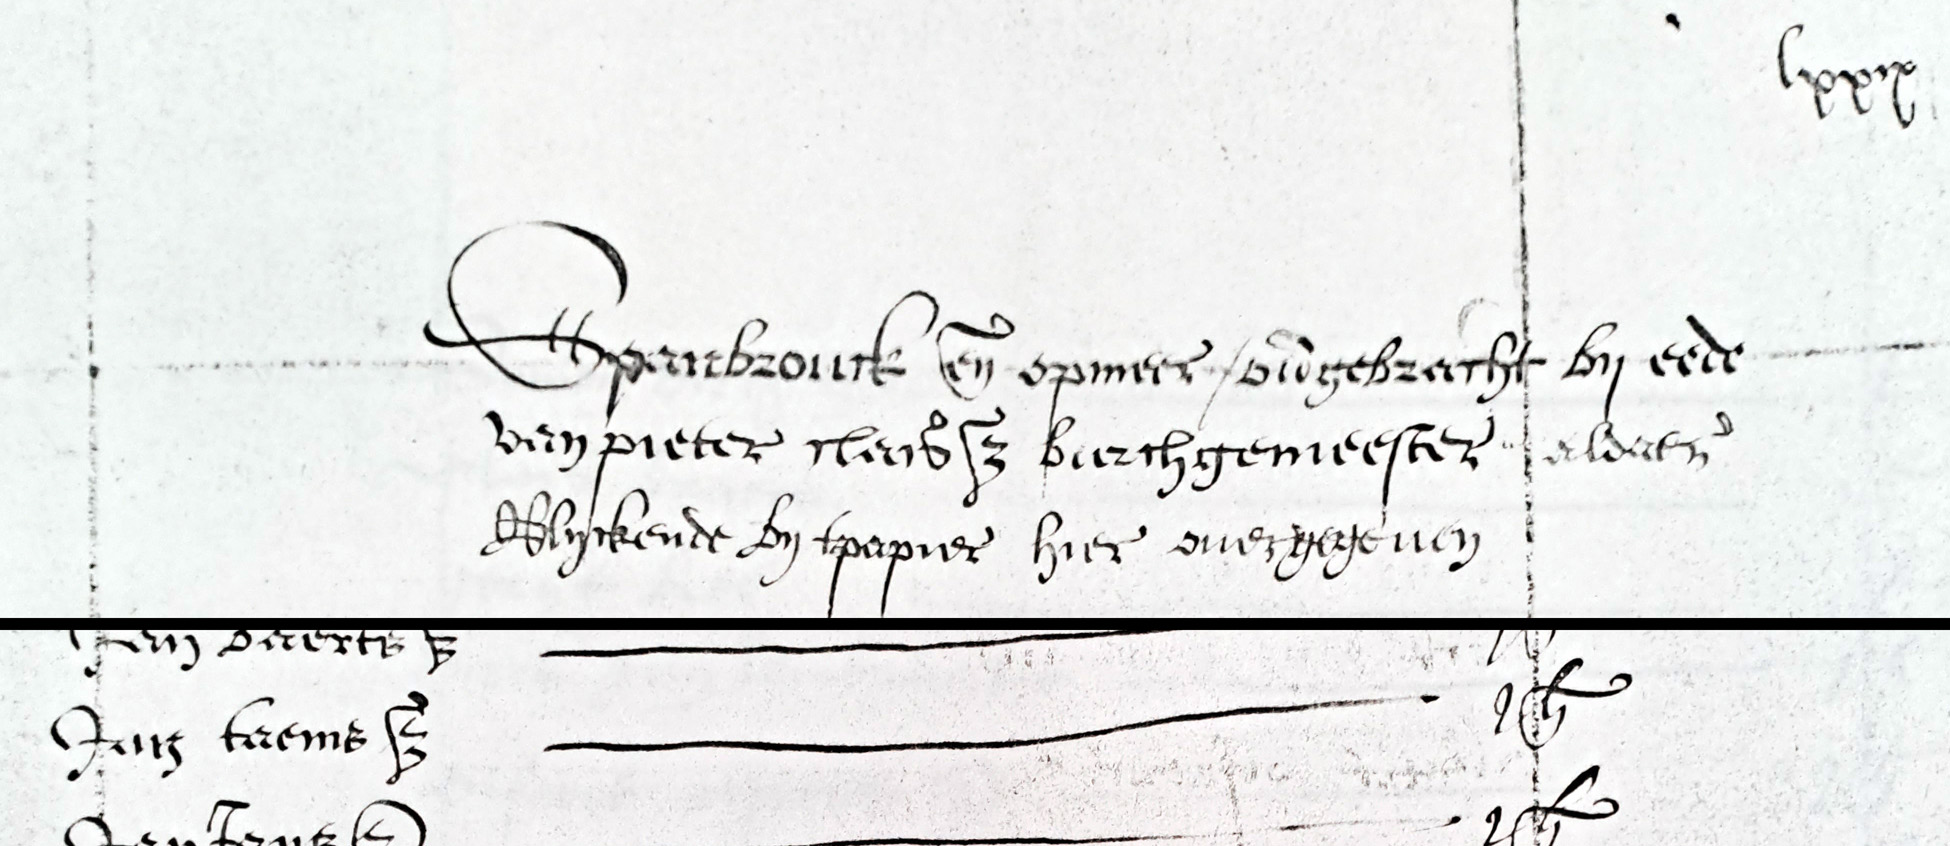 lxxix
Spanbrouck en opmeer / overgebracht by eede
van pieter claes sz burchgemeester aldaer
Blyckende by tpapier hier overgegeven
Jan taems sz